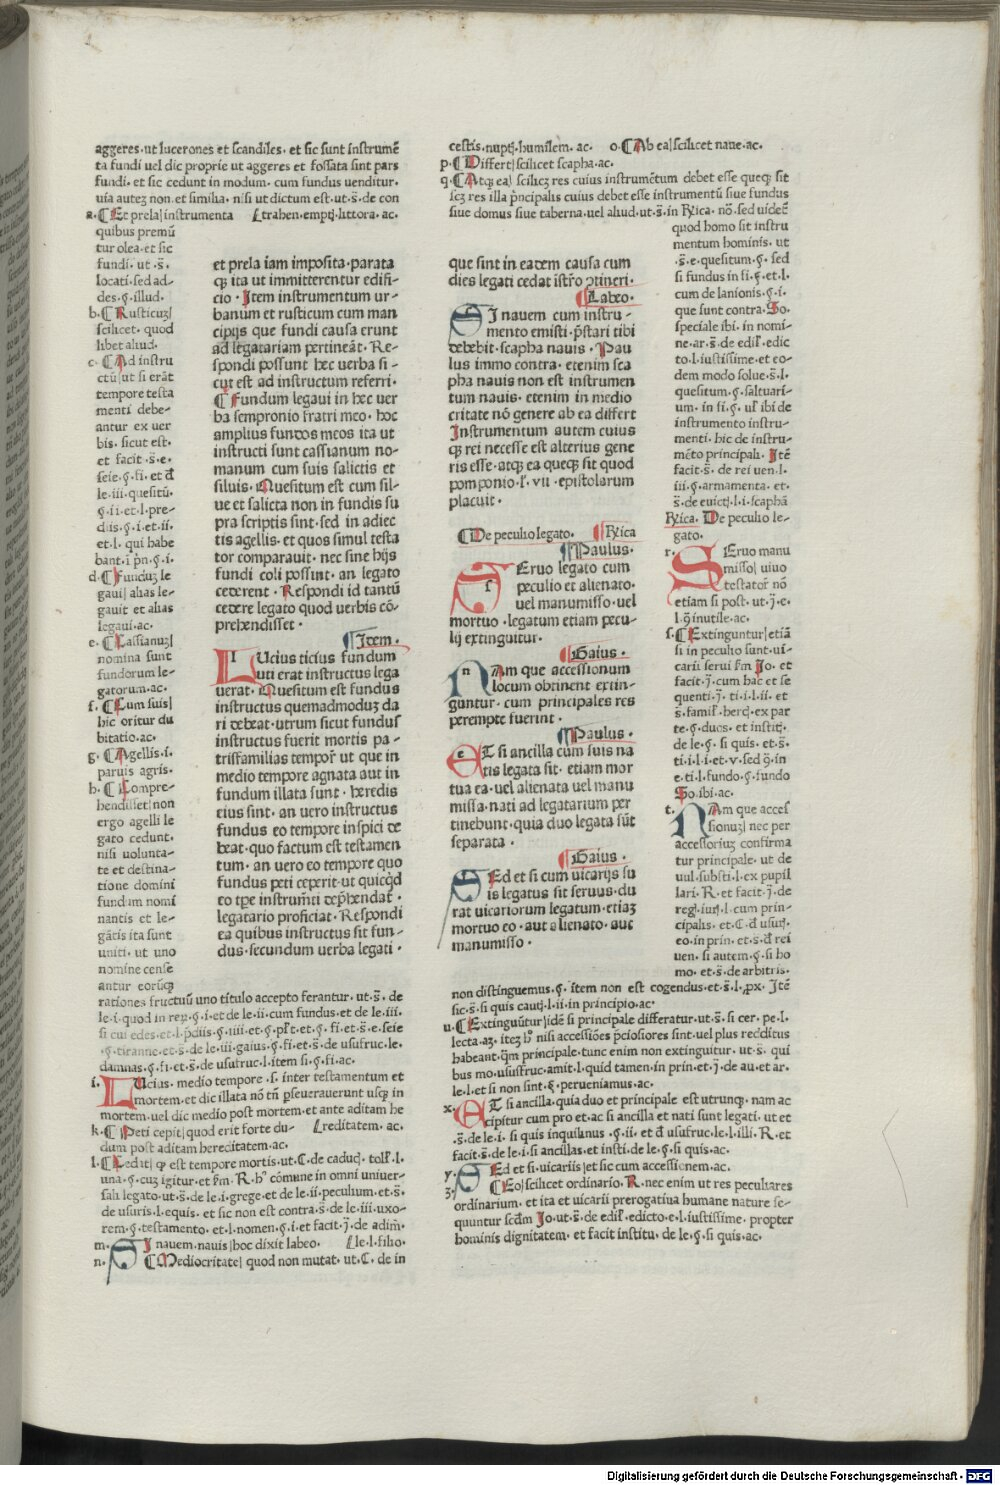 aggeres· ut lucerones et scandiles· et sic sunt instrumē
ta fundi uel dic proprie ut aggeres et fossata sint pars
fundi· et sic cedunt in modum· cum fundus uenditur·
uia autez non· et similia· nisi ut dictum est· ut· s̄· de con
a· Et prela| instrumenta traben· emptꝫ· littora· ac·
quibus premū
tur olea· et sic
fundi· ut· s̄·
locati· sed ad-
des· §· illud·
b· Rusticuz|
scilicet· quod
libet aliud·
c· Ad instru
ctū| ut si erāt
tempore testa
menti debe-
antur ex uer
bis· sicut est·
et facit· s̄· e·
seie· §· fi· et đ
le· iii· quesitū·
§· ii· et· l· pre-
diis· §· i· et· ii·
et· l· qui habe
bant· ī pn̄· §· i·
d· Funduz le
gaui| alias le-
gauit et alias
legaui· ac·
e· Cassianuz|
nomina sunt
fundorum le-
gatorum· ac·
f· Cum suis|
hic oritur du
bitatio· ac·
g· Agellis· i·
paruis agris·
h· Compre-
hendisset| non
ergo agelli le
gato cedunt·
nisi uolunta-
te et destina-
tione domini
fundum nomi
nantis et le-
gātis ita sunt
uniti· ut uno
nomine cense
antur eorūꝗ
rationes fructuū uno titulo accepto ferantur· ut· s̄· de
le· i· quod in rep̄· §· i· et de le· ii· cum fundus· et de le· iii·
si cui edes· et· l· p̄diis· §· iiii· et· §· pl̄t· et· §· fi· et· s̄· e· seie
·§· tiranne· et· s̄· de le· iii· gaius· §· fi· et· s̄· de usufruc· le·
damnas· §· fi· et· s̄· de usufruc· l· item si· §· fi· ac·
i· Lucius· medio tempore· s· inter testamentum et
mortem· et dic illata nō tn̄ p̄seuerauerunt usqꝫ in
mortem· uel dic medio post mortem· et ante aditam he
k· Peti cepit| quod erit forte du- reditatem· ac·
dum post aditam hereditatem· ac·
l· Cedit| ꝙ est tempore mortis· ut· C· de caducꝫ· toll̄· l·
una· §· cuz igitur· et s̄m· R· hͦ cōmune in omni uniuer-
sali legato· ut· s̄· de le· i· grege· et de le· ii· peculium· et· s̄·
de usuris· l· equis· et sic non est contra· s̄· de le· iii· uxo-
rem· §· testamento· et· l· nomen· §· i· et facit· j̄· de adim̄·
m· Si nauem· nauis| hoc dixit labeo· le· l· filio·
n· Mediocritate| quod non mutat· ut· C· de in
et prela iam imposita· parata
ꝙ ita ut immitterentur edifi-
cio· Item instrumentum ur-
banum et rusticum cum man
cipijs que fundi causa erunt
ad legatariam pertineāt· Re-
spondi possunt hec uerba si-
cut est ad instructum referri·
Fundum legaui in hec uer
ba sempronio fratri meo· hoc
amplius fundos meos ita ut
instructi sunt cassianum no-
manum cum suis salictis et
siluis· Quesitum est cum sil-
ue et salicta non in fundis su
pra scriptis sint· sed in adiec
tis agellis· et quos simul testa
tor comparauit· nec sine hijs
fundi coli possint· an legato
cederent· Respondi id tantū
cedere legato quod uerbis cō-
prehendisset·
Item·
Lucius ticius fundum
uti erat instructus lega
uerat· Quesitum est fundus
instructus quemadmoduz da
ri debeat· utrum sicut fundus
instructus fuerit mortis pa-
trisfamilias tempor̄ ut que in
medio tempore agnata aut in
fundum illata sunt· heredis
eius sint· an uero instructus
fundus eo tempore inspici de
beat· quo factum est testamen
tum· an uero eo tempore quo
fundus peti ceperit· ut quicꝙd
eo tp̄e instrum̄ti dep̄hendat̄·
legatario proficiat· Respondi
ea quibus instructus sit fun-
dus· secundum uerba legati·
cestis· nuptꝫ· humilem· ac· o· Ab ea| scilicet naue· ac·
p· Differt| scilicet scapha· ac·
q· Atqꝫ ea| scilicꝫ res cuius instrumētum debet esse queqꝫ sit
scꝫ res illa p̄ncipalis cuius debet esse instrumentū siue fundus
siue domus siue taberna· uel aliud· ut· s̄· in Rica· nō· sed uidet̄
quod homo sit instru
mentum hominis· ut
·s̄· e· quesitum· §· sed
si fundus in si· §· et· l·
cum de lanionis· §· i·
que sunt contra· So·
speciale ibi· in nomi-
ne· ar· s̄· de edil̄· edic
to· l· iustissime· et eo-
dem modo solue· s̄· l·
quesitum· §· saltuari-
um· in si· §· ul̄ ibi de
instrumento instru-
menti· hic de instru-
mēto principali· Itē
facit· s̄· de rei uen· l·
iii· §· armamenta· et·
s̄· de euictꝫ· l· i· scaphā
Rica· De peculio le-
gato·
r· Seruo manu
misso| uiuo
testator̄ nō
etiam si post· ut· j̄· e·
l· ꝗ inutile· ac·
s· Extinguntur| etiā
si in peculio sunt· ui-
carii serui s̄m Jo· et
facit· j̄· cum hac et se
quenti· j̄· ti· i· l· ii· et
s̄· famil̄· hercꝫ· ex par
te· §· duos· et institꝫ·
de le· §· si quis· et· s̄·
ti· i· l· i· et· v· sed ꝗ· in
e· ti· l· fundo· §· fundo
So· ibi· ac·
t· Nam que acces
sionuz| nec per
accessoriuz confirma
tur principale· ut de
uul· substi· l· ex pupil
lari· R· et facit· j̄· de
regꝫ· iurꝫ· l· cum prin-
cipalis· et· C· đ usurꝫ·
eo· in prin· et· s̄· đ rei
uen· si autem· §· si ho
mo· et· s̄· de arbitris·
que sint in eadem causa cum
dies legati cedat istr̄o ꝯtineri·
Labeo·
Si nauem cum instru-
mento emisti· p̄stari tibi
debebit· scapha nauis· Pau
lus immo contra· etenim sca
pha nauis non est instrumen
tum nauis· etenim in medio
critate nō genere ab ea differt
Instrumentum autem cuius
ꝙ rei necesse est alterius gene
ris esse· atqꝫ ea queqꝫ sit quod
pomponio· l̄· vii· epistolarum
placuit·
De peculio legato· Rica
Paulus·
Seruo legato cum
peculio et alienato·
uel manumisso· uel
mortuo· legatum etiam pecu-
lij extinguitur·
Gaius·
Nam que accessionum
locum obtinent extin-
guntur· cum principales res
perempte fuerint·
Paulus·
Et si ancilla cum suis na
tis legata sit· etiam mor
tua ea· uel alienata uel manu
missa· nati ad legatarium per
tinebunt· quia duo legata sūt
separata·
Gaius·
Sed et si cum uicarijs su
is legatus sit seruus· du
rat uicariorum legatum· etiaz
mortuo eo· aut alienato· aut
manumisso·
non distinguemus· §· item non est cogendus· et· s̄· l· ꝓx· Itē
sic· s̄· si quis cautꝫ· l· ii· in principio· ac·
u· Extinguūtur| idē si principale differatur· ut· s̄· si cer· pe· l·
lecta· aꝫ· itez hͦ nisi accessiōes p̄ciosiores sint· uel plus redditus
habeant· ꝗm principale· tunc enim non extinguitur· ut· s̄· qui
bus mo· ususfruc· amit· l· quid tamen· in prin· et· j̄· de au· et ar·
le· l· et si non sint· §· perueniamus· ac·
x· Et si ancilla· quia duo et principale est utrunqꝫ· nam ac
cipitur cum pro et· ac si ancilla et nati sunt legati· ut et
·s̄· de le· i· si quis inquilinus· §· ii· et đ usufruc· le· l· illi· R· et
facit· s̄· de le· i· si ancillas· et insti· de le· §· si quis· ac·
y· Sed et si· uicariis| et sic cum accessionem· ac·
z· Eo| scilicet ordinario· R· nec enim ut res peculiares
ordinarium· et ita et uicarii prerogatiua humane nature se-
quuntur scdm̄ Jo· ut· s̄· de edil̄· edicto· e· l· iustissime· propter
hominis dignitatem· et facit institu· de le· §· si quis· ac·
Digitalisierung gefördert durch die Deutsche Forschungsgemeinschaft · DFG